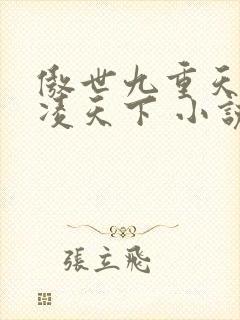 傲世九重天
凌天下 小說
張立飛